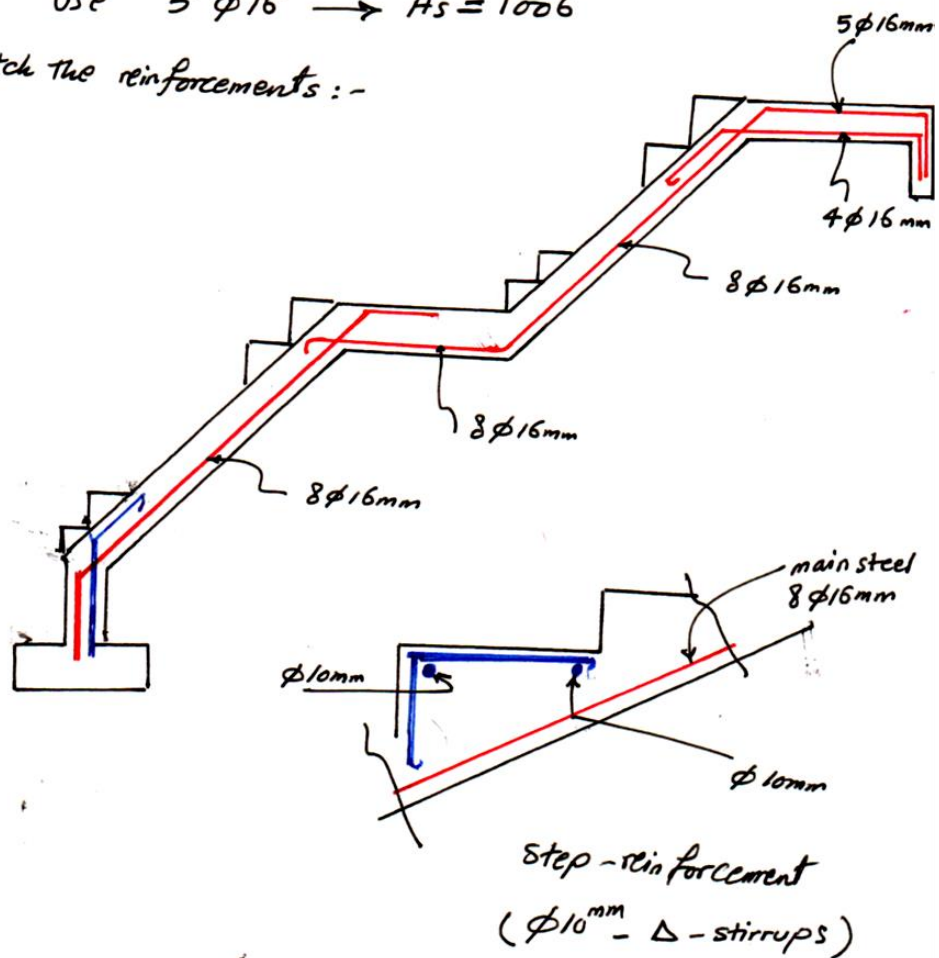 Use 5 ϕ16 → As = 1006
the reinforcements :-
5ϕ16mm
4ϕ16mm
8ϕ16mm
8ϕ16mm
8ϕ16mm
main steel
8ϕ16mm
ϕ10mm
ϕ10mm
Step-reinforcement
(ϕ10mm - Δ - stirrups)